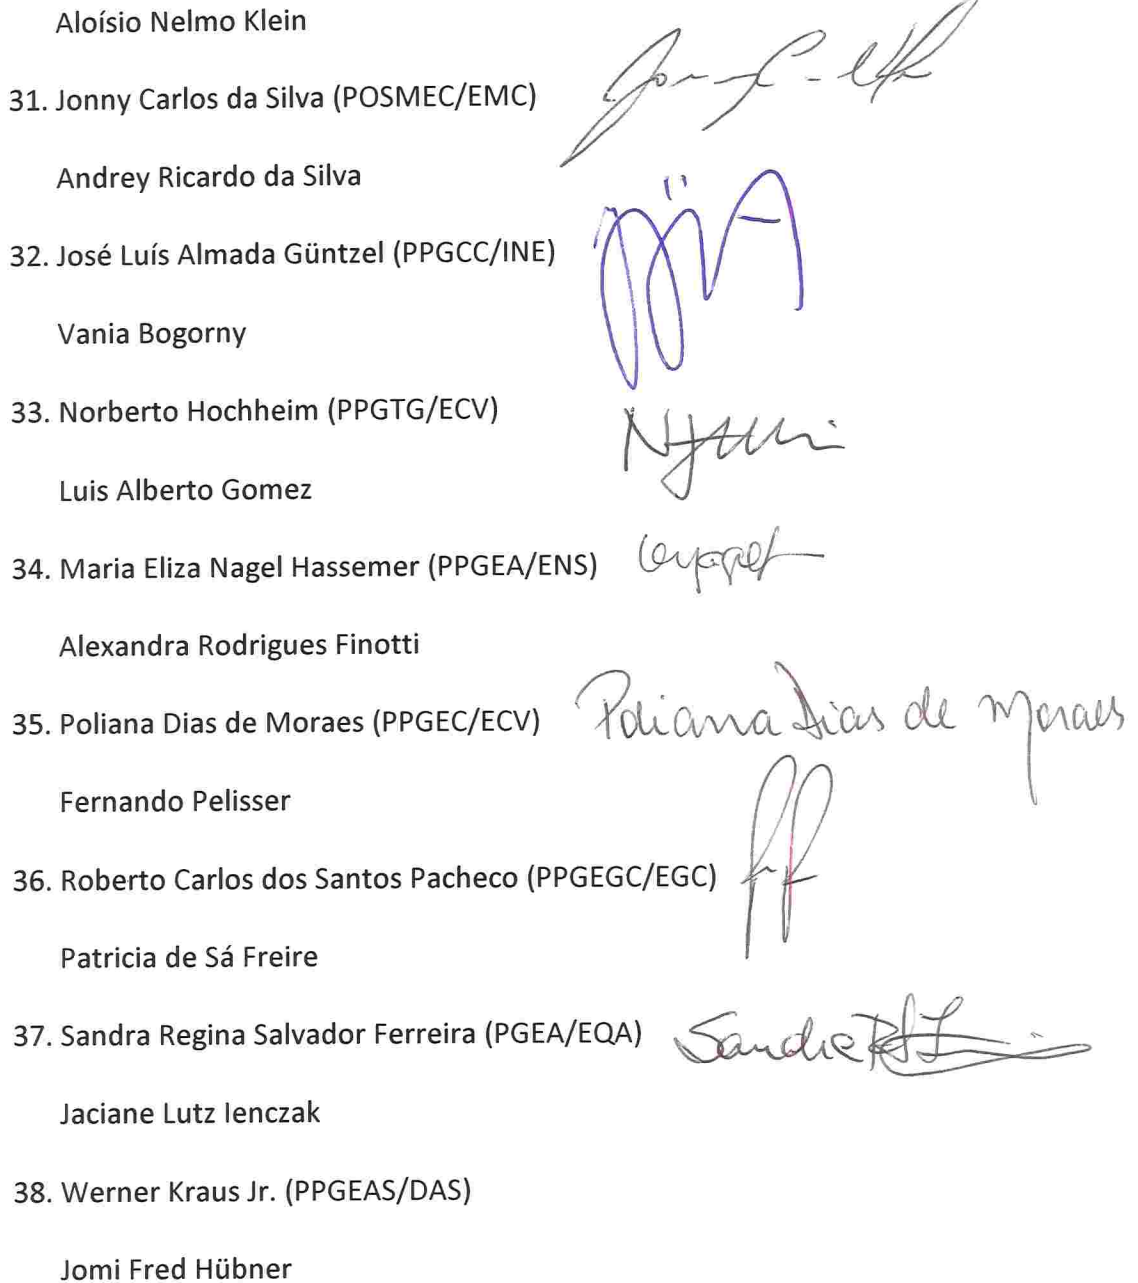 Aloísio Nelmo Klein
31. Jonny Carlos da Silva (POSMEC/EMC)
Andrey Ricardo da Silva
32. José Luís Almada Güntzel (PPGCC/INE)
Vania Bogorny
33. Norberto Hochheim (PPGTG/ECV)
Luis Alberto Gomez
34. Maria Eliza Nagel Hassemer (PPGEA/ENS)
Alexandra Rodrigues Finotti
35. Poliana Dias de Moraes (PPGEC/ECV) Poliana Dias de Moraes
Fernando Pelisser
36. Roberto Carlos dos Santos Pacheco (PPGEGC/EGC)
Patricia de Sá Freire
37. Sandra Regina Salvador Ferreira (PGEA/EQA)
Jaciane Lutz Ienczak
38. Werner Kraus Jr. (PPGEAS/DAS)
Jomi Fred Hübner